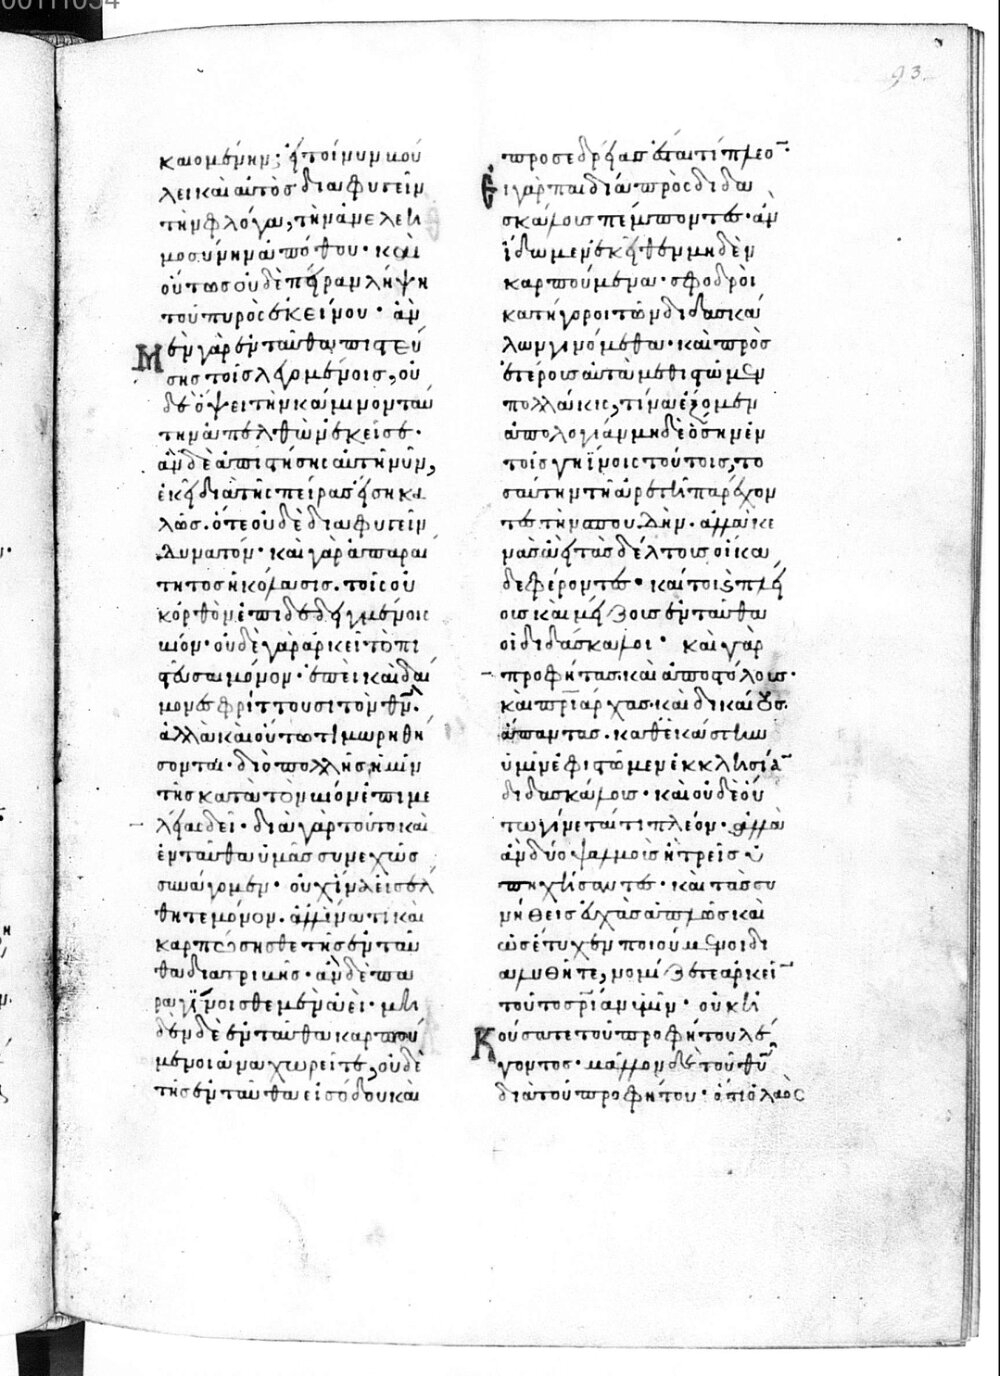 93
καιομένην; εἰ τοίνυν βού
λει καὶ αὐτὸς διαφυγεῖν
τὴν φλόγα, τὴν ἀνελεη
μοσύνην ἀπόθου· καὶ
οὕτως οὐδὲ πεῖραν λήψη
τοῦ πυρὸς ἐκείνου· ἂν
μὲν γὰρ ἐνταῦθα πιστεύ
σης τοῖς λεγομένοις, οὐ
δὲ ὄψει τὴν κάμινον ταύ
την ἀπελθὼν ἐκεῖσε·
ἂν δὲ ἀπιστήσης αὐτῆ νῦν,
ἐκεῖ διὰ τῆς πείρας εἴση κα
λῶς. ὅτε οὐδὲ διαφυγεῖν
δυνατόν· καὶ γὰρ ἀπαραί
τητος ἡ κόλασις. τοῖς οὐ
κ ὀρθὸν ἐπιδεδειγμένοις
βίον· οὐδὲ γὰρ ἀρκεῖ τὸ πι
στεῦσαι μόνον· ἐπεὶ καὶ δαί
μονες φρίττουσι τὸν θν.
ἀλλὰ καὶ οὕτω τιμωρηθή
σονται· διὸ πολλῆς ἡμῖν
τῆς κατὰ τὸν βίον ἐπιμε
λείας δεῖ· διὰ γὰρ τοῦτο καὶ
ἐνταῦθα ὑμᾶς συνεχῶς
συνάγομεν· οὐχ ἵνα εἰσέλ
θητε μόνον. ἀλλ' ἵνα τι καὶ
καρπώσησθε τῆς ἐνταῦ
θα διατριβῆς· ἂν δὲ πα
ραγίνοισθε μὲν ἀεὶ· μη
δὲν δὲ ἐνταῦθα καρπού
μενοι ἀναχωρεῖτε, οὐδὲ
τῆς ἐνταῦθα εἰσόδου καὶ
προσεδρείας ἔσται τι πλέο·
εἰ γὰρ παιδία πρὸς διδα
σκάλους πέμποντες· ἂν
ἴδωμεν ἐκεῖθεν μηδὲν
καρπούμενα· σφοδροὶ
κατήγοροι τῶν διδασκά
λων γινόμεθα· καὶ πρὸς
ἑτέρους αὐτὰ μεθιστῶμεν
πολλάκις, τίνα ἕξομεν
ἀπολογίαν μηδὲ ὅσην ἐν
τοῖς γηΐνοις τούτοις, το
σαύτην τῆ ἀρετῆ παρέχον
τες τὴν σπουδήν· ἀλλὰ κε
νὰς ἀεὶ τὰς δέλτους οἴκα
δε φέροντες· καίτοι πλεί
ους καὶ μείζους ἐνταῦθα
οἱ διδάσκαλοι· καὶ γὰρ
προφήτας καὶ ἀποστόλους·
καὶ πριάρχας· καὶ δικαίους.
ἅπαντας. καθ' ἑκάστην
ὑμῖν ἐφιστῶμεν ἐκκλησία
διδασκάλους· καὶ οὐδὲ οὕ
τω γίνεταί τι πλέον· ἀλλὰ
ἂν δύο ψαλμοὺς ἢ τρεῖς ὑ
πηχήσαντες· καὶ τὰς συ
νήθεις εὐχὰς ἁπλῶς καὶ
ὡς ἔτυχεν ποιούμενοι δι
αλυθῆτε, νομίζετε ἀρκεῖ
τοῦτο πρὸς σριαν ὑμῖν· οὐκ ἠ
κούσατε τοῦ προφήτου λέ
γοντος· μᾶλλον δὲ τοῦ θυ
διὰ τοῦ προφήτου· ὅτι ὁ λαὸς